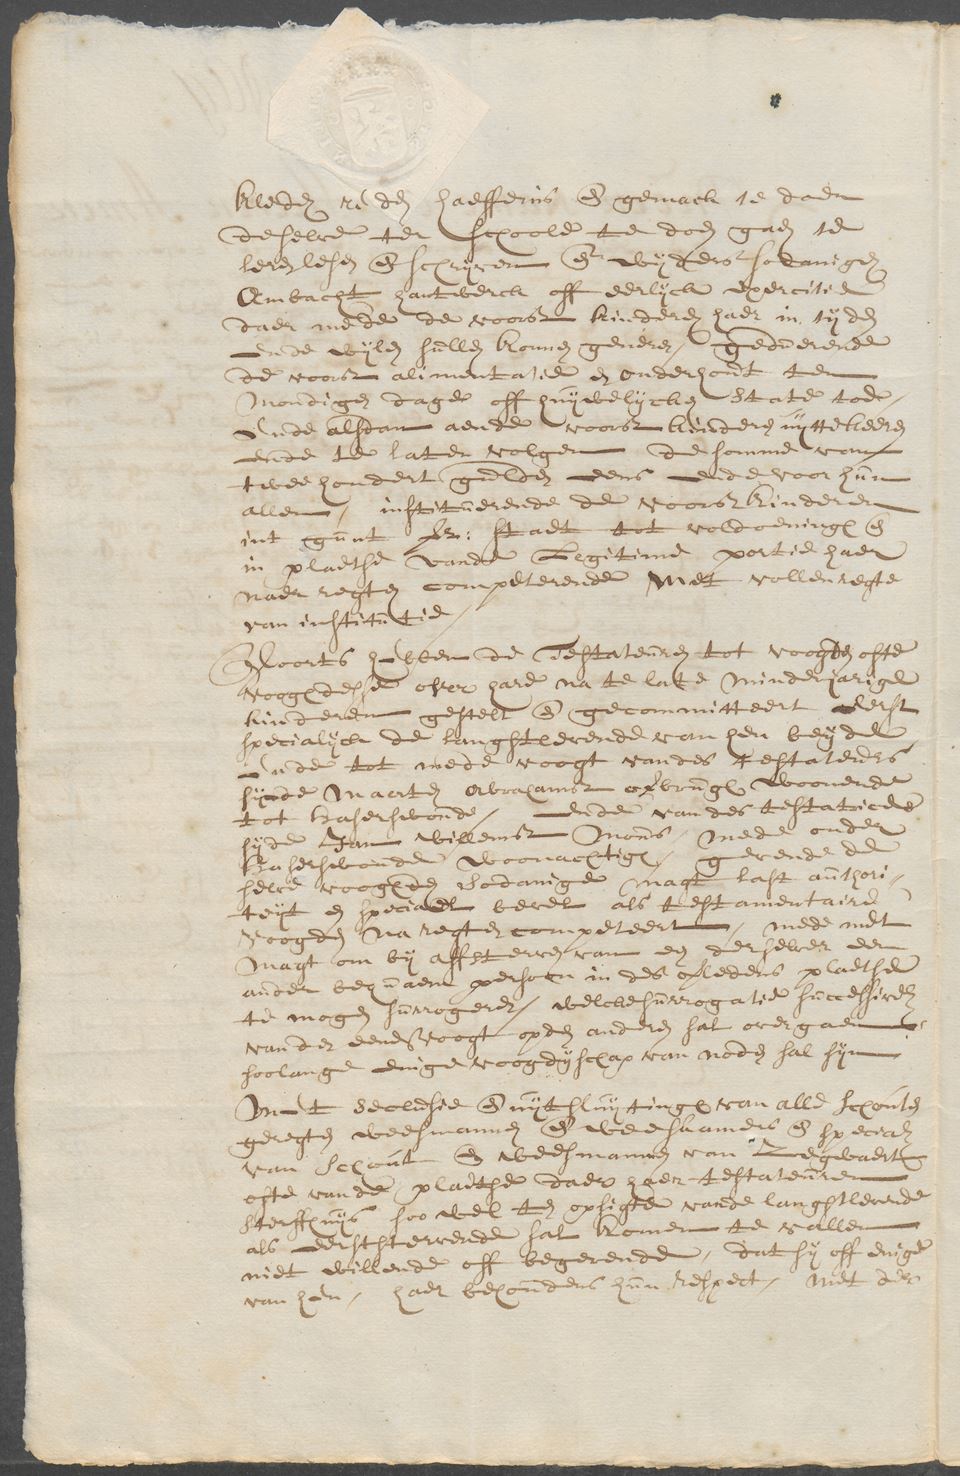 kleden reden haeffenis & gemack te doen
deselve ter schoole te doen gaen te
leren lesen & schryven & wyders sodanigen
Ambacht hantwerck off eerlyck exercitie
daer mede de voors kinderen haer in tyden
ende wylen sullen konnen generen / gedurende
de voors alimentatie en onderhout ten
mondigen dage off huwelycken state toe /
Ende alsdan aende voors kinderen uytte keeren
ende te laten volgen de somme van
twee hondert gulden eens ende voor hun
allen / instituerende de voors kinderen
int gunt stadt tot voldoeninge &
in plaetse vande Legitime portie haer
naer regten competerende Met vollen regte
van institutie /
Voorts hebben de Testateuren tot voogden ofte
voogdesse over hare na te late minderjarige
kinderen gestelt & gecommitteert Eerst
specialyck de langstlevende van hen beyde
Ende tot mede voogt van des testateurs
syde Maerten Abrahams woonende
tot Haserswoude / ende van des testatrices
syde Jan Willemsz Mons, mede onder
Haserswoude woonachtigh / gevende de
selve voogden sodanige magt last authori-
teyt en speciael bevel als testamentaire
voogden na regten competeert, mede met
magt om by affsterven van een derselver een
ander bequaem persoon in des overledens plaetse
te mogen surrogeren / welcke surrogatie successive
van den eenen voogt op den anderen sal overgaen
soolange enige voogdyschap van noden sal syn
Met seclusie & uytsluytinge van alle schouten
geregten weesmannen & weeskamers & speciael
van schout & weesmannen van Zegwaert
ofte vande plaetse daer haer testateuren
sterffhuys soo wel ten opsigte vande langstlevende
als eerststervende sal komen te vallen
niet willende off begerende, dat sy off enige
van hen, haer behoudens hun respect, met den